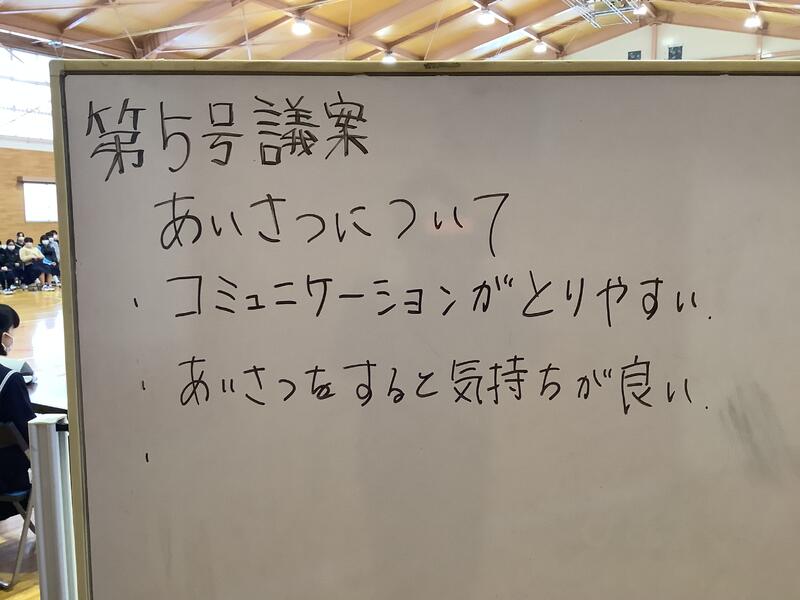 第5号議案
あいさつについて
・コミュニケーションがとりやすい.
・あいさつをすると気持ちが良い.
・